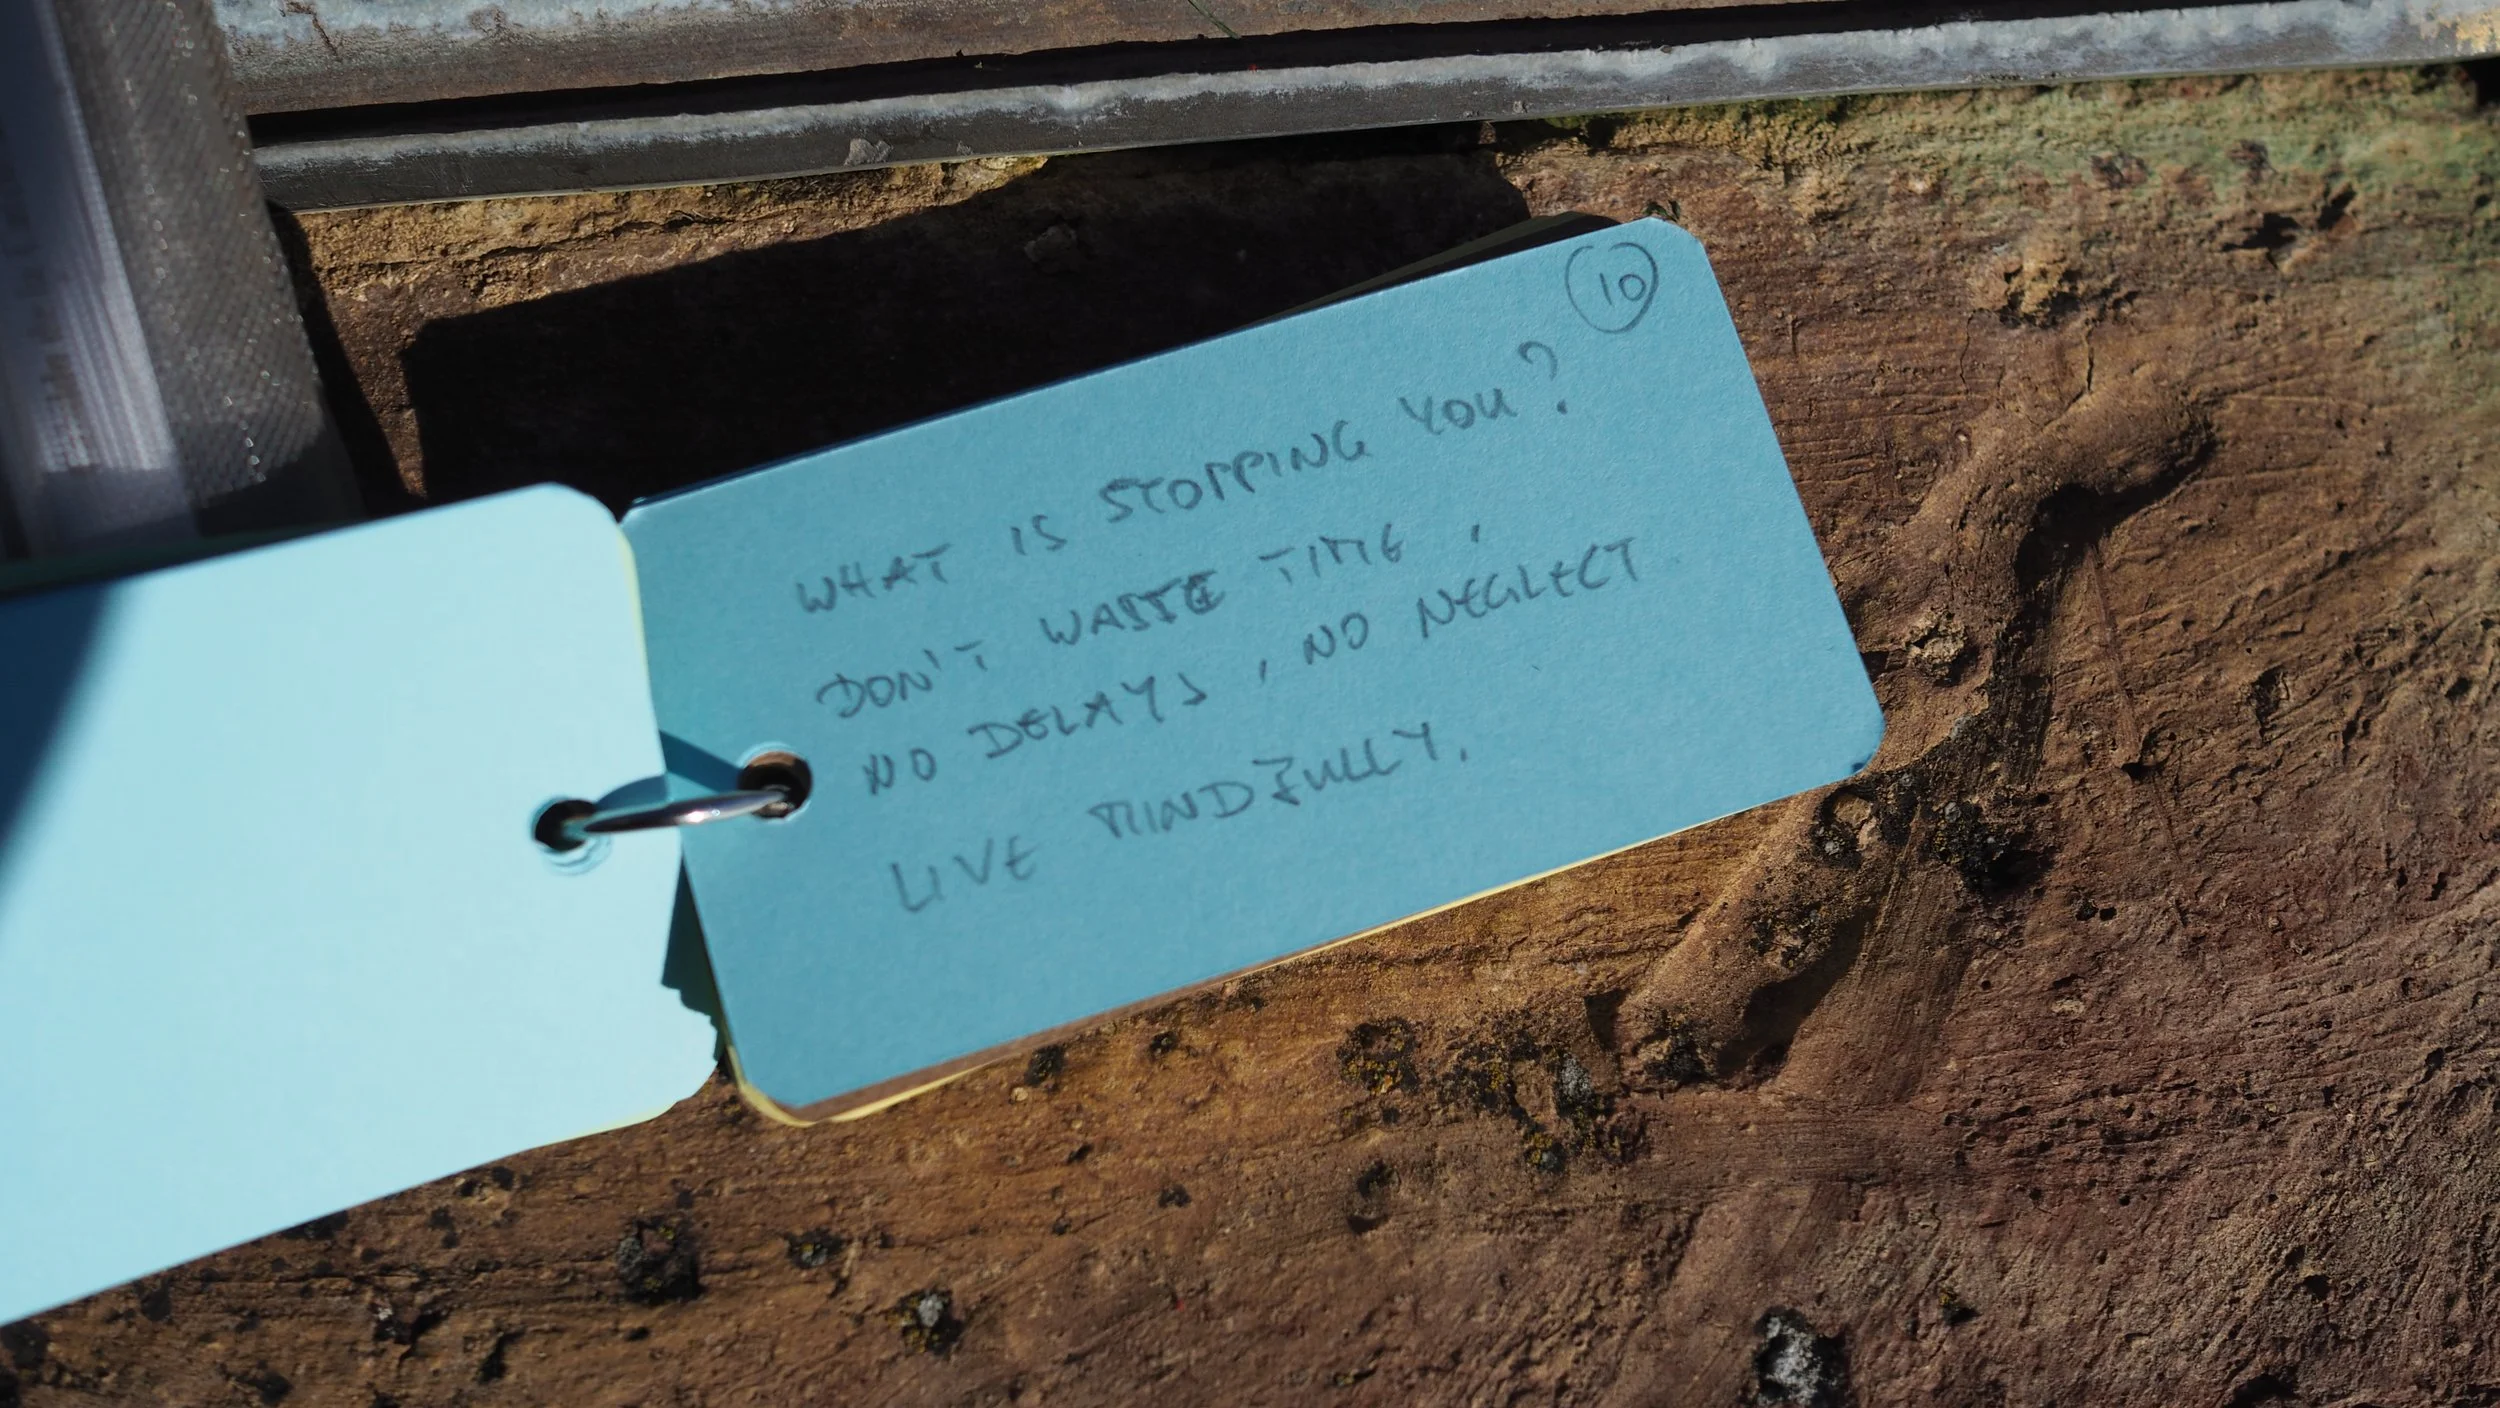 10
WHAT IS STOPPING YOU?
DON'T WASTE TIME,
NO DELAYS, NO NEGLECT
LIVE MINDFULLY.